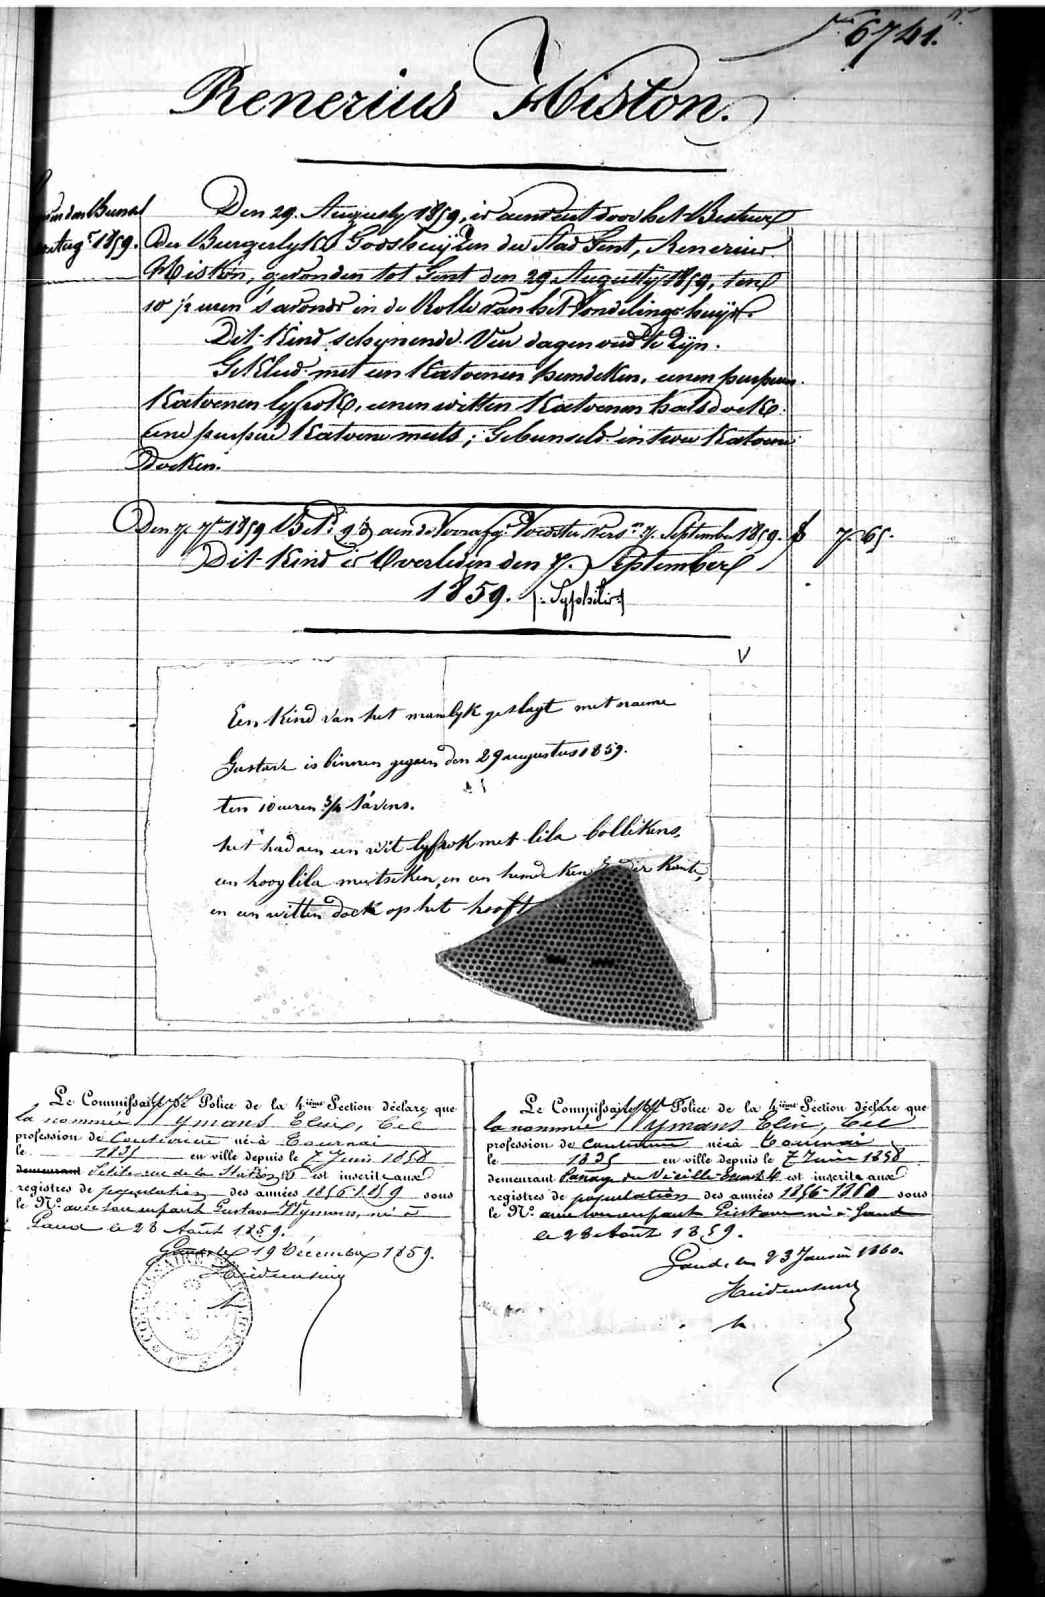 6741.
Renerius Histon.
Den 29. Augusty 1859, is aenveird door het Bestuer
der Burgerlyke Godshuyzen der Stad Gent, Renerius
Histon, gevonden tot Gent den 29 Augusty 1859, ten
10 ½ uren s'avonds in de Rolle van het Vondelingshuys.
Dit Kind schynende Vier dagen oud te zyn.
Gekleed met een Katoenen hemdeken, eenen purpren
Katoenen lyfrok, eenen witten Katoenen halsdoek
eene purpere Katoene muts; Gebunseld in twee Katoene
Doeken.
Augt 1859.
Den 7. 7ber 1859 Bet. aen de Voedster 7. September 1859. f 7-65.
Dit Kind is Overleden den 7. September
1859. (: Syphilis :)
V
Een Kind van het manlyk geslagt met naeme
Gustave is binnen gegaen den 29 augustus 1859.
ten 10 uren 3/4 s'avens.
het had aen een wit lyfrok met lila bollekens,
een hoog lila mutseken, en een hemdeken zonder kante,
en een witten doek op het hooft
Le Commissaire de Police de la 4ième Section déclare que
la nommée Wymans Elise, Cel
profession de Couturière née à Tournai
le 1835 en ville depuis le 7 Juin 1858
demeurant Petite rue de la Station N° est inscrite aux
registres de population des années 1856-1859 sous
le N° avec son enfant Gustave Wymans, né à
Gand le 28 Août 1859.
Gand le 19 Décembre 1859.
Le Commissaire de Police de la 4ième Section déclare que
la nommée Wymans Elise, Cel
profession de couturière née à Tournai
le 1835 en ville depuis le 7 Juin 1858
demeurant est inscrite aux
registres de population des années 1856-1860 sous
le N° avec son enfant Gustave né à Gand
le 28 Août 1859.
Gand, le 23 Janvier 1860.